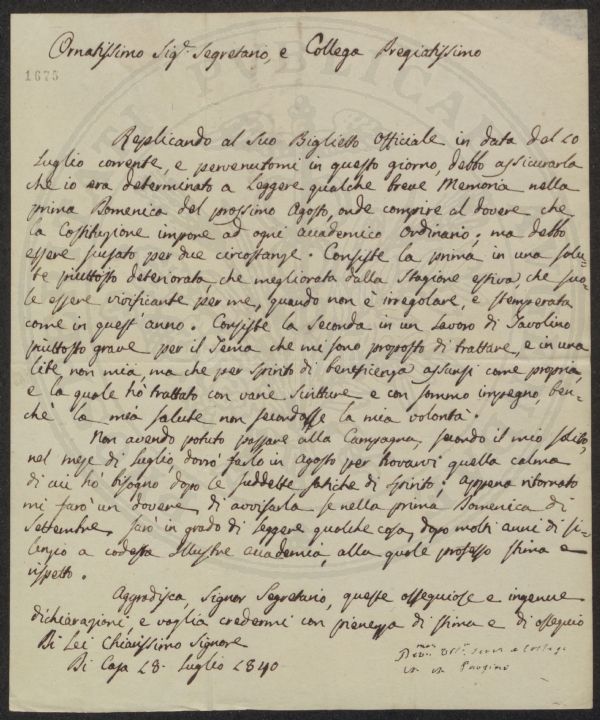 Ornatissimo Sig.r Segretario, e Collega Pregiatissimo
1675
Replicando al suo Biglietto Officiale in data del 20
Luglio corrente, e pervenutomi in questo giorno, debbo assicurarla
che io era determinato a Leggere qualche breve Memoria nella
prima Domenica del prossimo Agosto, onde compire al dovere che
la Costituzione impone ad ogni accademico ordinario; ma debbo
essere scusato per due circostanze. Consiste la prima in una salu-
te piuttosto deteriorata, che megliorata dalla Stagione estiva, che suo-
le essere vivificante per me, quando non è irregolare, e stemperata
come in quest'anno. Consiste la seconda in un Lavoro di Tavolino
piuttosto grave per il Tema che mi sono proposto di trattare, e in una
Lite non mia, ma che per spirito di beneficenza assunsi come propria,
e la quale hò trattato con varie scritture e con sommo impegno, ben-
che la mia salute non secondasse la mia volontà.
Non avendo potuto passare alla Campagna, secondo il mio solito,
nel mese di Luglio, dovrò farlo in Agosto per trovarvi quella calma
di cui hò bisogno dopo le suddette fatiche di spirito; appena ritornato
mi farò un dovere di avvisarla se nella prima Domenica di
Settembre, sarò in grado di leggere qualche cosa, dopo molti anni di si-
lenzio a codesta Illustre accademia, alla quale professo stima e
rispetto.
Aggradisca, Signor Segretario, queste ossequiose e ingenue
dichiarazioni, e voglia credermi con pienezza di stima e di ossequio
Di Lei Chiarissimo Signore
Di Casa 28. Luglio 1840
Collega